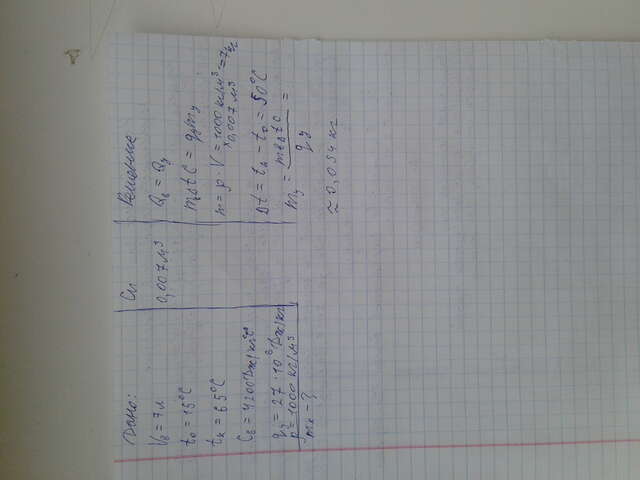 Дано:
V₆ = 7 л
t₀ = 15°C
tк = 65°C
Cв = 4200 Дж/кг°C
qу = 27 · 10⁶ Дж/кг
ρ = 1000 кг/м³
mк - ?
Си
0,007 м³
Решение
Qв = Qу
mвΔtC = qуmу
m = ρ · V = 1000 кг/м³ · = 7 кг
× 0,007 м³
Δt = tк - t₀ = 50°C
mу = mвΔtC / qу =
≈ 0,054 кг